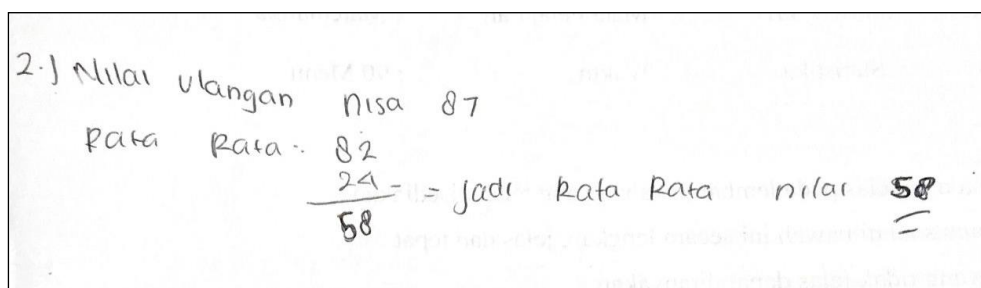 2.) Nilai ulangan nisa 87
Rata Rata : 82
24 = = jadi Rata Rata nilai 58
58